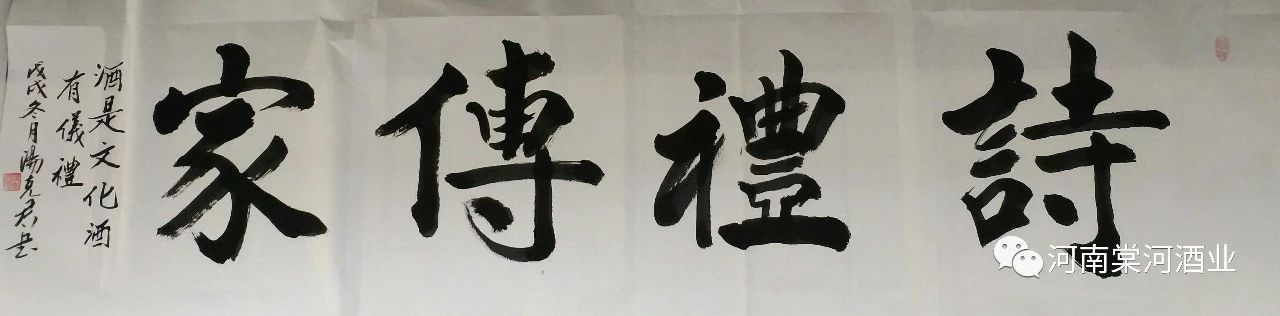 詩禮傳家
酒是文化酒
有儀禮
戊戌冬月陽克
河南棠河酒业